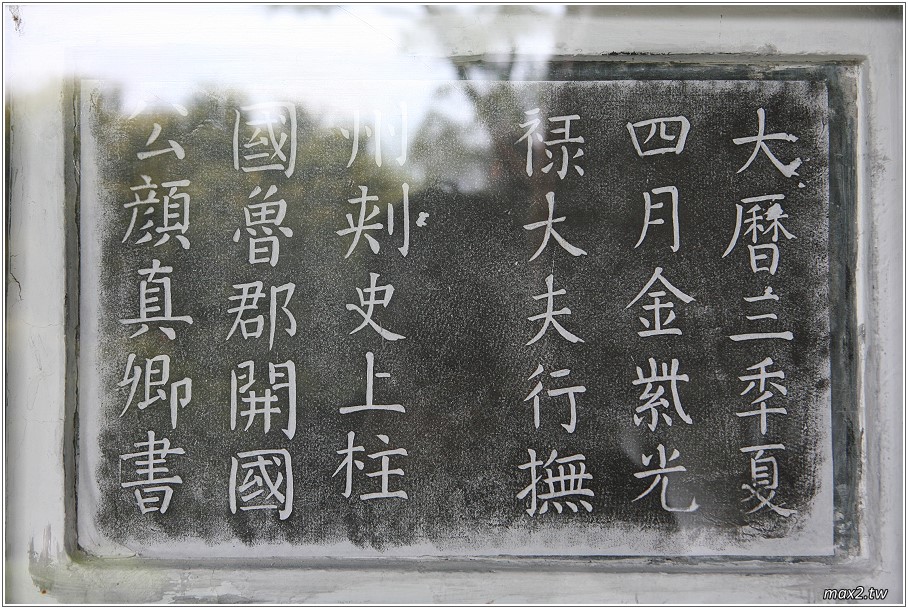 大曆三秊夏
四月金紫光
禄大夫行撫
州刾史上柱
國魯郡開國
公顔真卿書
max2.tw